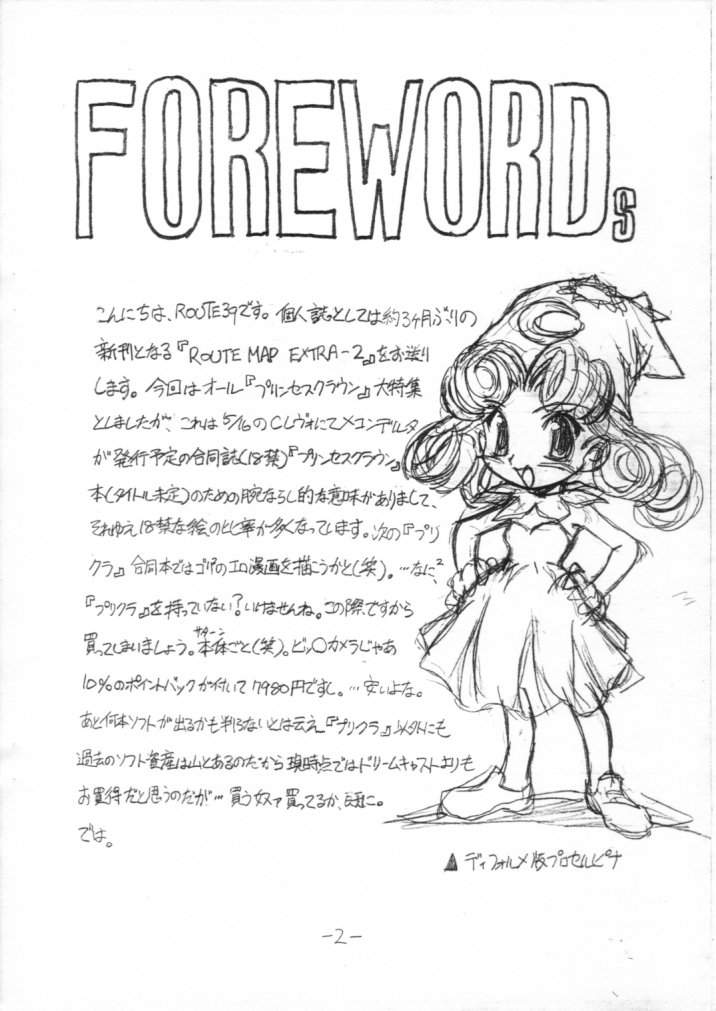 FOREWORDs
こんにちは、ROUTE39です。個人誌としては約3ヶ月ぶりの
新刊となる『ROUTE MAP EXTRA-2』をお送り
します。今回はオール『プリンセスクラウン』大特集
としましたが、これは5/16のCレヴォにてメコンデルタ
が発行予定の合同誌(18禁)『プリンセスクラウン』
本(タイトル未定)のための腕ならし的な意味がありまして、
それゆえ18禁な絵のヒ率が多くなっています。次の『プリ
クラ』合同本ではゴリアのエロ漫画を描こうかと(笑)。…なに、
『プリクラ』を持っていない?いけませんね。この際ですから
買ってしまいましょう。本体ごと(笑)。ビッ〇カメラじゃあ
サターン
10%のポイントバックが付いて7980円ですし。…安いよな。
あと何本ソフトが出るかも判らないとは云え『プリクラ』以外にも
過去のソフト資産は山とあるのだから現時点ではドリームキャストよりも
お買得だと思うのだが…買う奴ァ買ってるか、既に。
では。
▲ディフォルメ版プロセルピナ
-2-